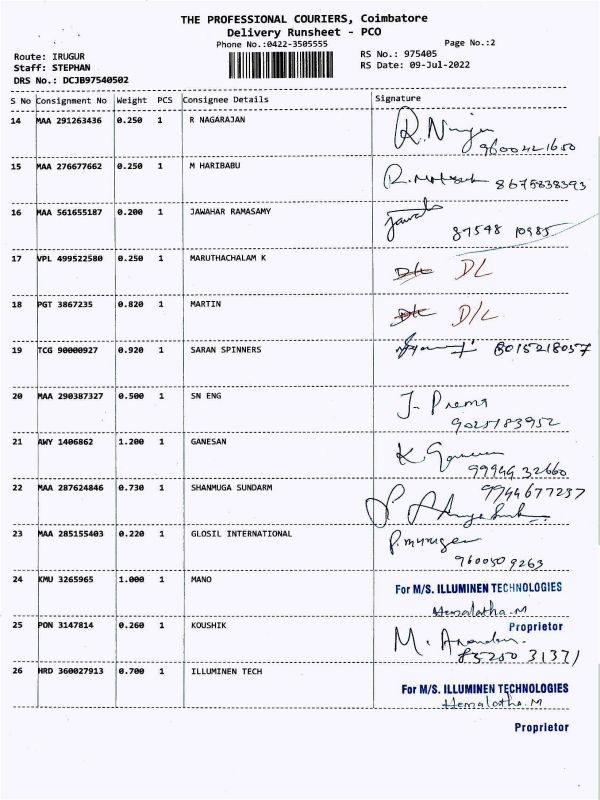 THE PROFESSIONAL COURIERS, Coimbatore
Delivery Runsheet - PCO
Phone No.:0422-3505555
Page No.:2
Route: IRUGUR
RS No.: 975405
Staff: STEPHAN
RS Date: 09-Jul-2022
DRS No.: DCJB97540502
S No Consignment No Weight PCS Consignee Details Signature
14 MAA 291263436 0.250 1 R NAGARAJAN
9600421650
15 MAA 276677662 0.250 1 M HARIBABU
8675838393
16 MAA 561655187 0.200 1 JAWAHAR RAMASAMY
87548 10985
17 VPL 499522580 0.250 1 MARUTHACHALAM K
DL
18 PGT 3867235 0.820 1 MARTIN
D/L
19 TCG 90000927 0.920 1 SARAN SPINNERS
8015218057
20 MAA 290387327 0.500 1 SN ENG
J. Prema
9025183952
21 AWY 1406862 1.200 1 GANESAN
99944 32660
22 MAA 287624846 0.730 1 SHANMUGA SUNDARM
9944677237
23 MAA 285155403 0.220 1 GLOSIL INTERNATIONAL
P. murugan
9600509263
24 KMU 3265965 1.000 1 MANO
For M/S. ILLUMINEN TECHNOLOGIES
Hemalatha.M
Proprietor
25 PON 3147814 0.260 1 KOUSHIK
M. Anandan.
85200 31371
26 HRD 360027913 0.700 1 ILLUMINEN TECH
For M/S. ILLUMINEN TECHNOLOGIES
Hemalatha.M
Proprietor